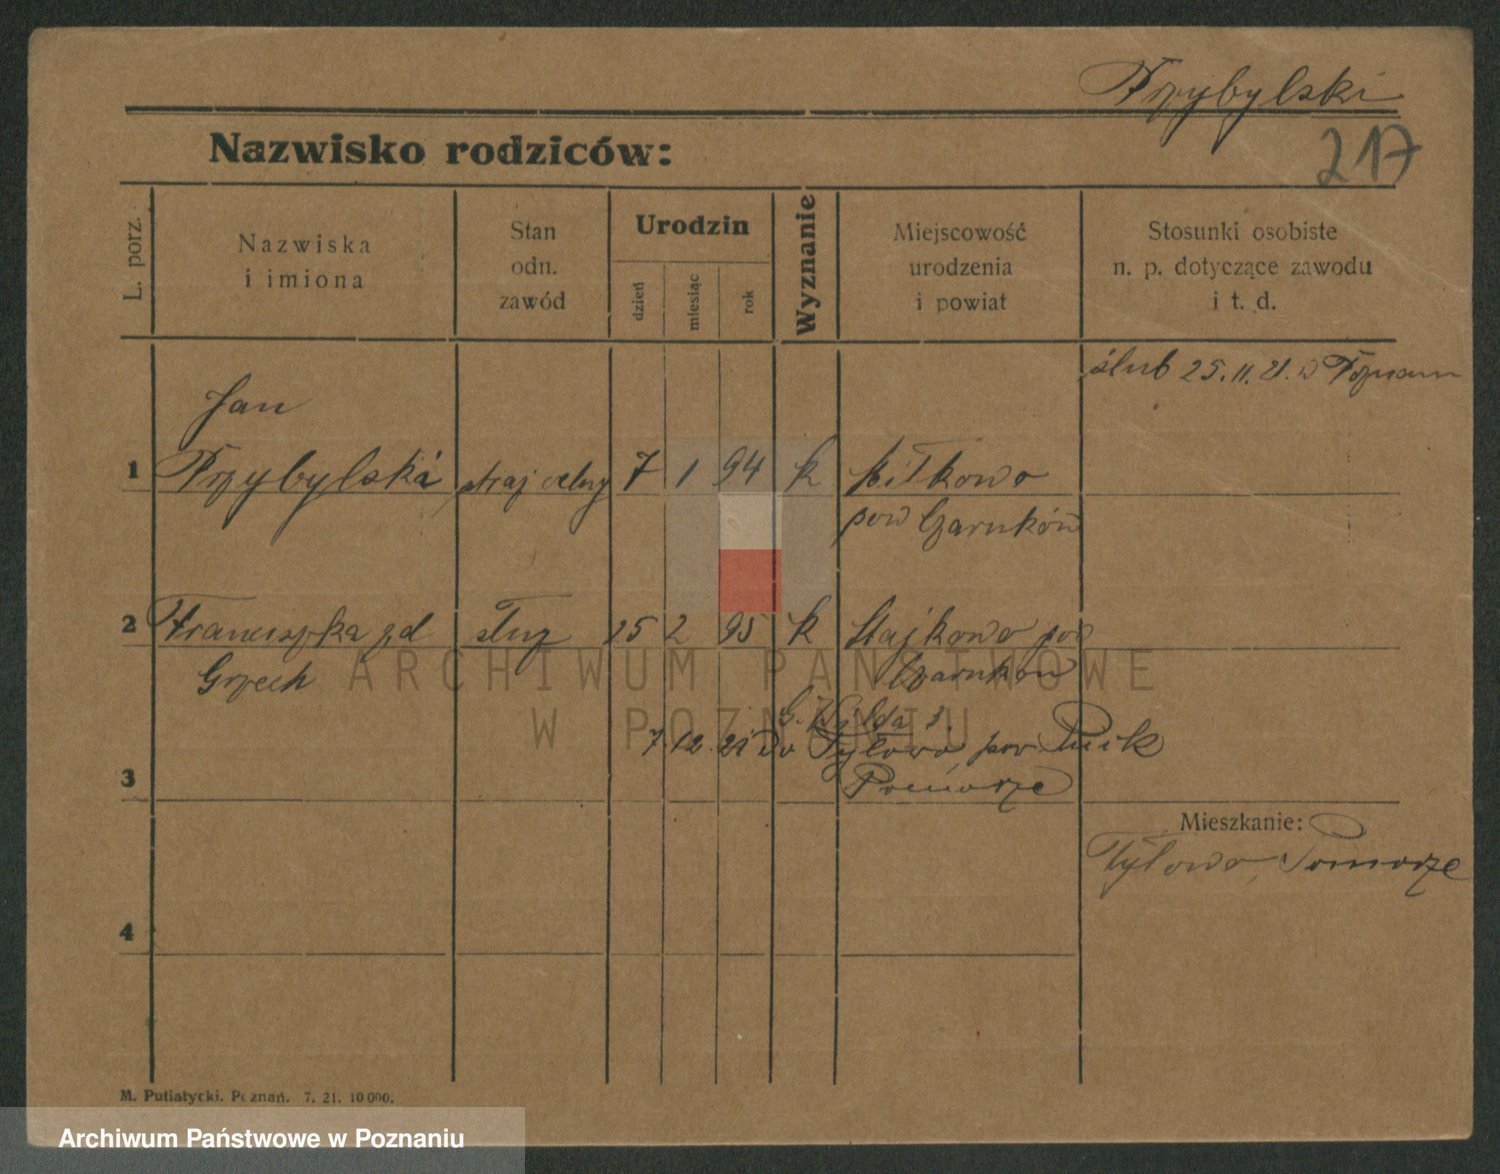 Przybylski
Nazwisko rodziców:
217
L. porz.
Nazwiska
i imiona
Stan
odn.
zawód
Urodzin
dzień
miesiąc
rok
Wyznanie
Miejscowość
urodzenia
i powiat
Stosunki osobiste
n. p. dotyczące zawodu
i t. d.
ślub 25.11.21. w Poznam
Jan
1 Przybylski straj celny 7 1 94 k Miłkowo
pow Czarnków
2 Franciszka zd służ 25 2 95 k Stajkowo pow
Grzech Czarnkow
ARCHIWUM PAŃSTWOWE
W POZNANIU
G. Wilda 3.
7.12.21 Do Tyłowo pow Puck
3 Pomorze
Mieszkanie:
Tyłowo, Pomorze
4
M. Putiatycki. Poznań. 7. 21. 10 000.
Archiwum Państwowe w Poznaniu